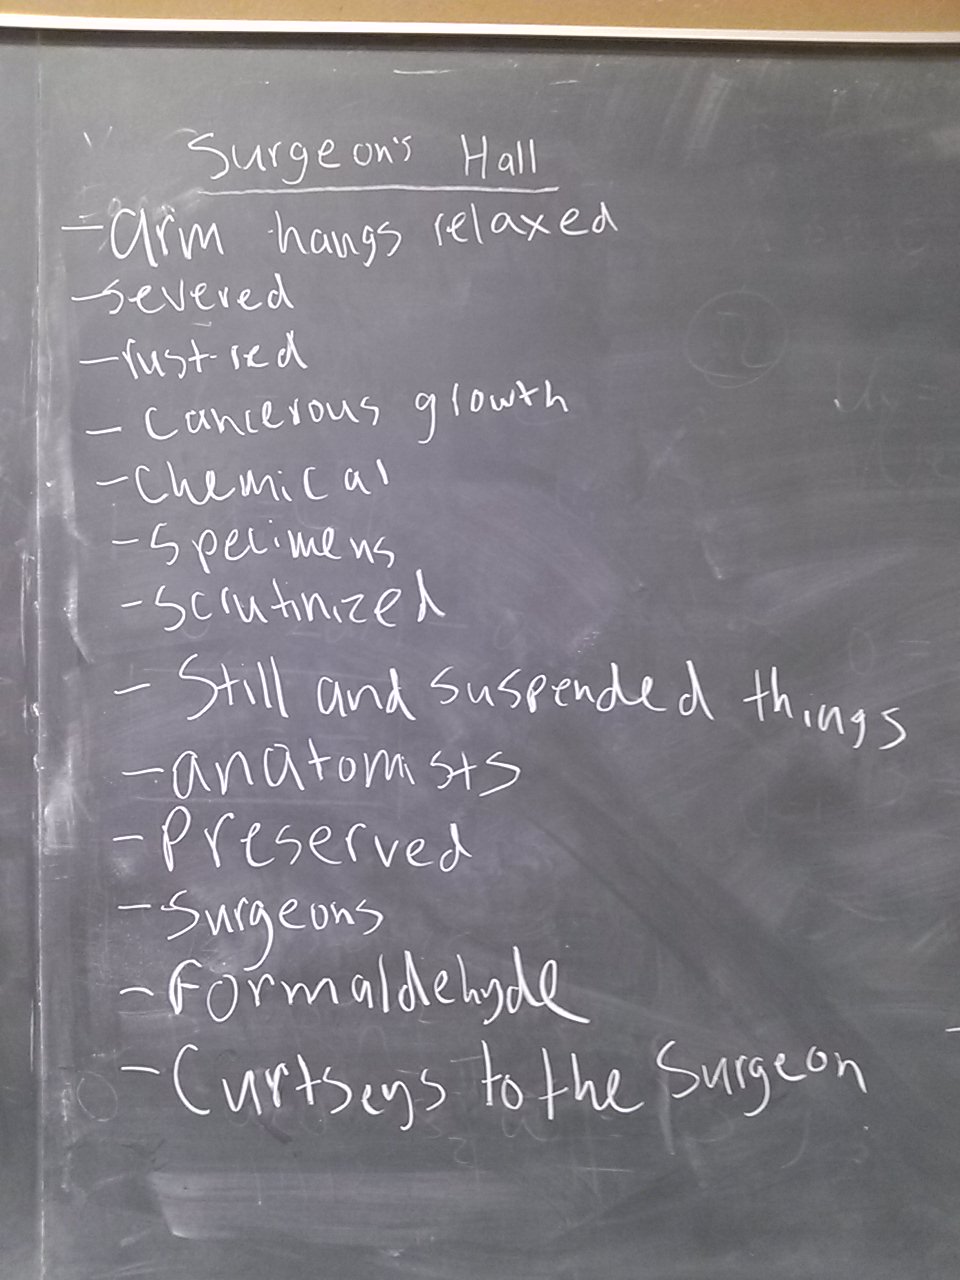 Surgeon's Hall
- arm hangs relaxed
- severed
- rust-red
- Cancerous growth
- Chemical
- Specimens
- Scrutinized
- Still and suspended things
- anatomists
- Preserved
- Surgeons
- Formaldehyde
- Curtseys to the Surgeon